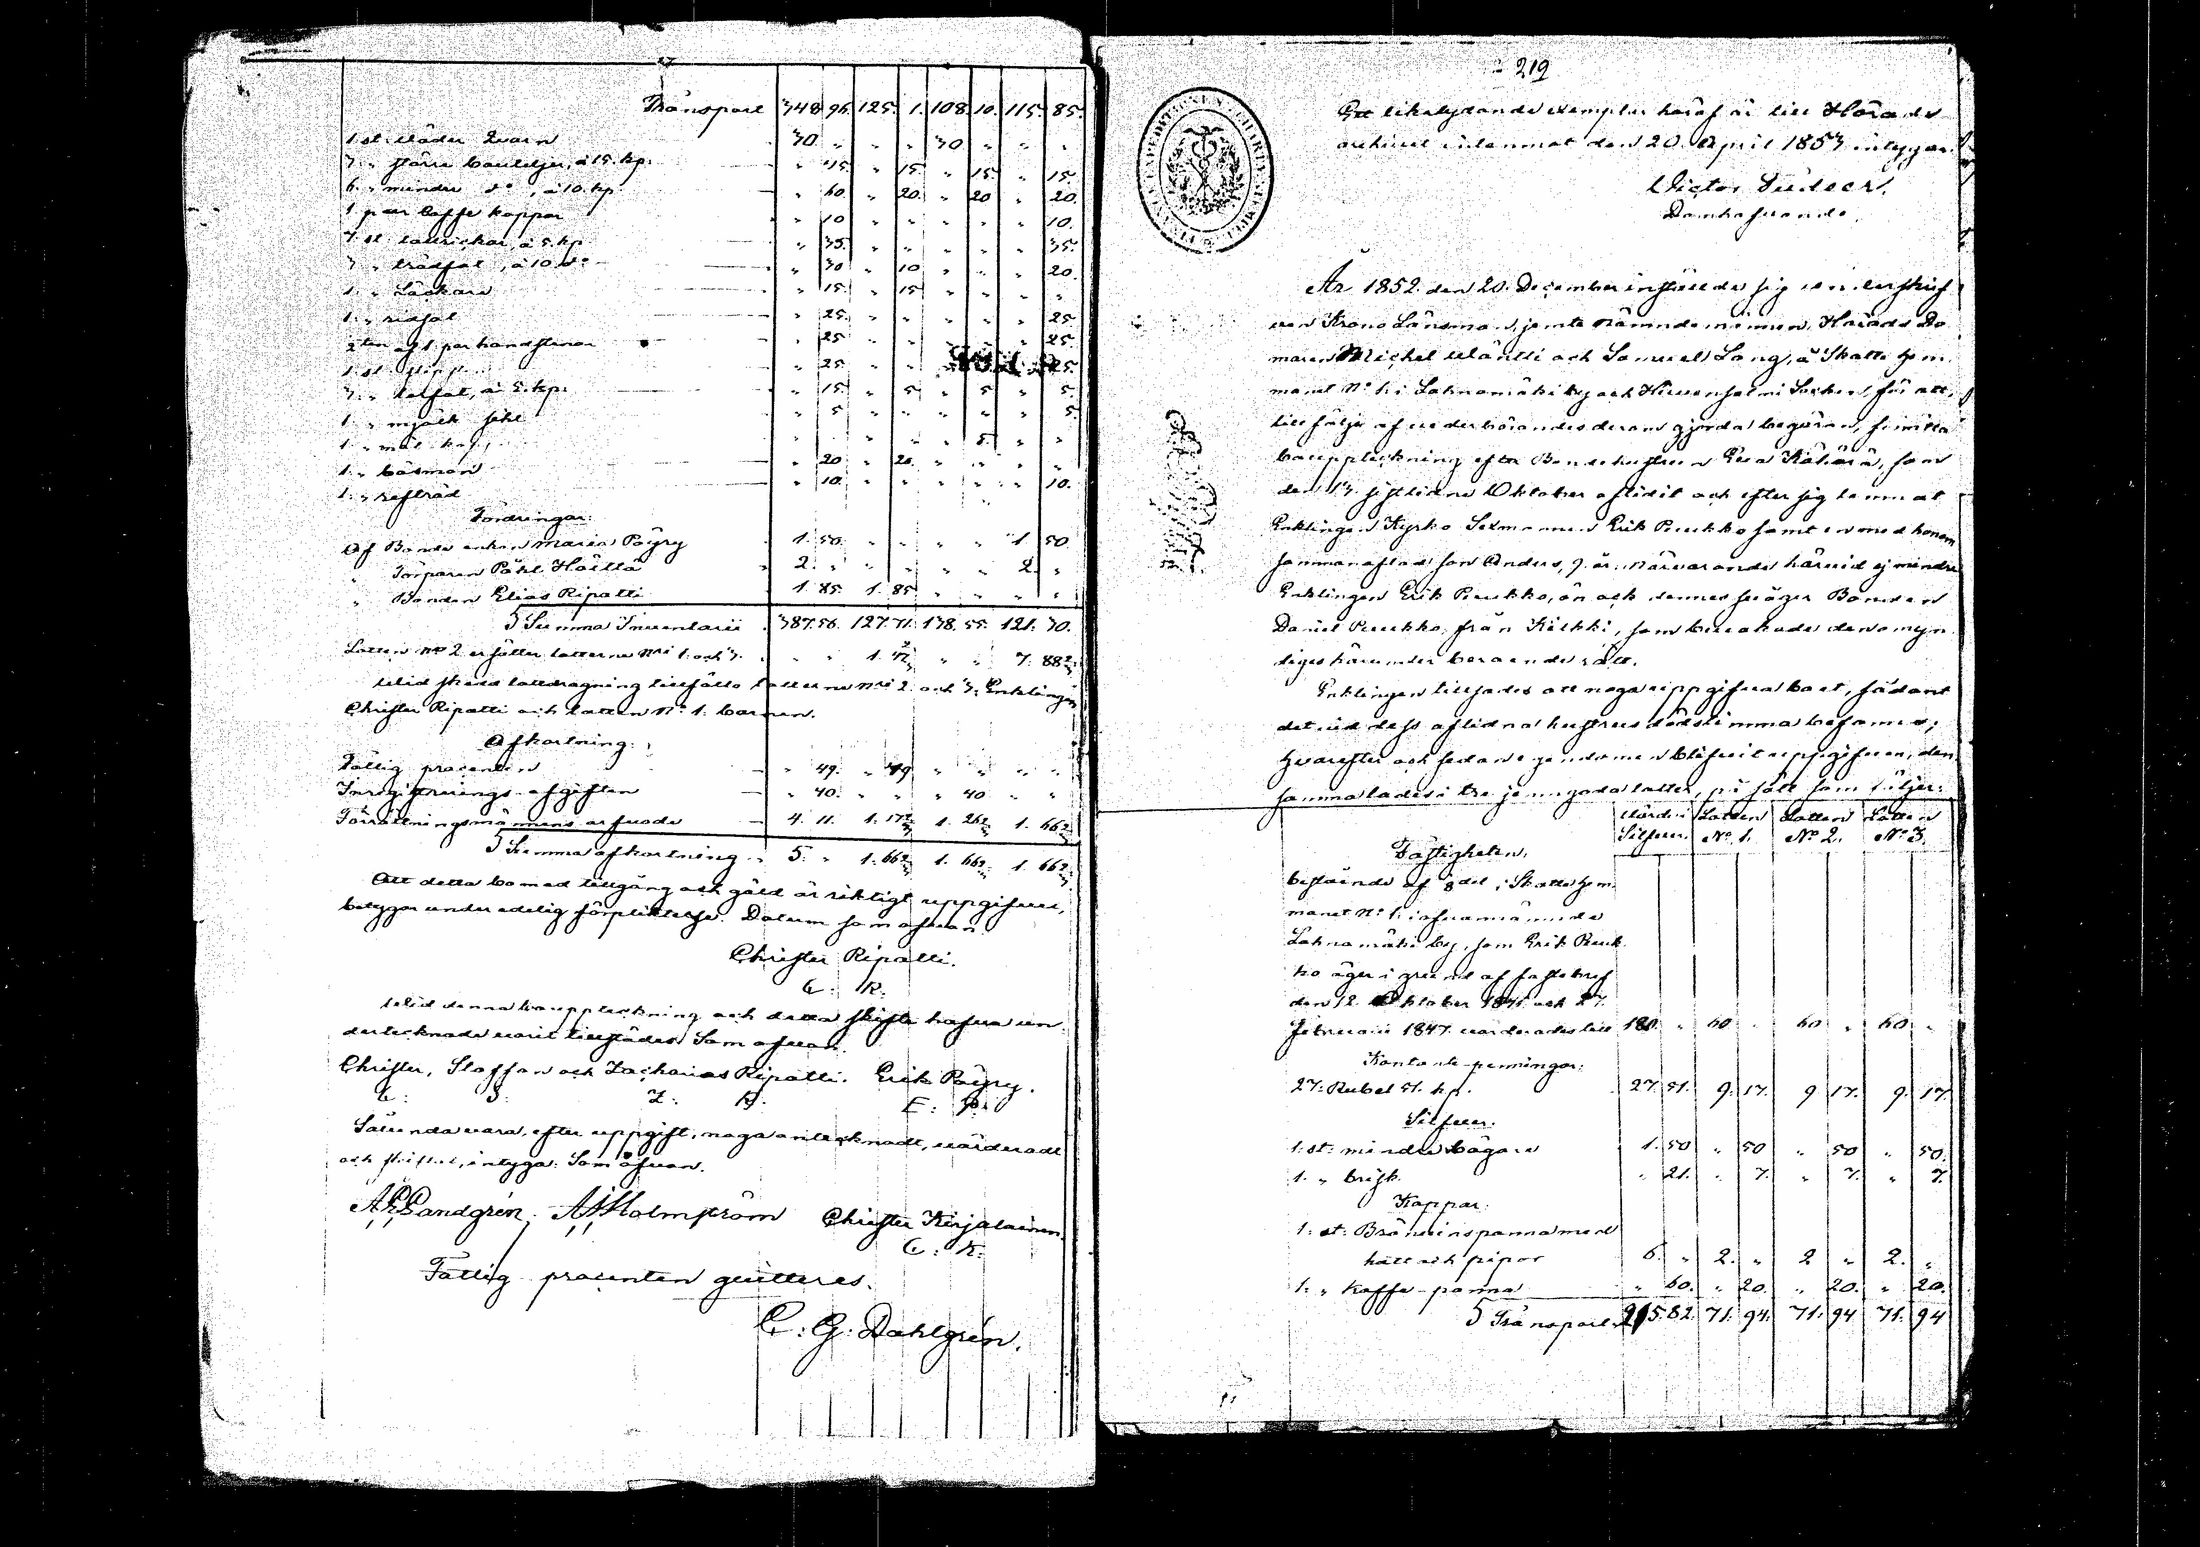 Transport 348 96. 125. 1. 108. 10. 115. 85.
1 st: väder Qvarn 30 „ „ „ 30 „ „ „
3 „ större bouteljer, à 15. kp: „ 45. „ 15. „ 15. „ 15.
6. „ mindre d:o, à 10. kp. „ 60. „ 20. „ 20 „ 20.
1 par Caffe koppar „ 10 „ „ „ „ „ 10.
7. st: tallrickar, à 5. kp. „ 35. „ „ „ „ „ 35.
3 „ trädfat, à 10. d:o „ 30 „ 10 „ „ „ 20.
1. „ Låckare „ 15. „ 15 „ „ „ „
1. „ „ 25. „ „ „ „ „ 25.
2 par handstenar „ 25 „ „ „ „ „ 25.
1. st: „ 25 25.
3. „ à 5. kp: „ 15. „ 5 „ 5 „ 5.
1. „ mjölk „ 5 „ „ „ „ „ 5
1. „ 5. „ „
1. „ båsman „ 20 „ 20. „ „ „ „
1. „ „ 10. „ „ „ „ „ 10.
Fordringar:
Af Bonde enkan Maria Pöyry 1. 50. „ „ „ „ 1 50
„ Torparen Påhl Hättlä 2. „ „ „ „ „ 2. „
„ Bonden Elias Ripatti 1. 85. 1. 85 „ „ „ „
Summa Inventarii 387. 56. 127. 71. 138. 55. 121. 30.
Lotten N:o 2 ersätter lotterne N:ris 1. och 3. „ „ 1. 42 „ „ 7. 88
Vid skedd lottdragning tillföllo lotterne N:ris 2. och 3. Enklingen
Christer Ripatti och lotten N:o 1. barnen.
Afkortning:
Fattig procenten „ 49. „ 49 „ „ „ „
Inregistrerings-afgiften „ 40. „ „ „ 40 „ „
Förrättningsmännens arfvode 4. 11. 1. 17 2/3 1. 26 2/3 1. 66 2/3
Summa afkortning 5. „ 1. 66 2/3 1. 66 2/3 1. 66 2/3
Att detta bo med tillgång och gäld är riktigt uppgifvet,
betygar under edelig förpliktelse. Datum som ofvan.
Christer Ripatti.
C: R:
Vid denna bouppteckning och detta skifte hafva un-
dertecknade varit tillstädes. Som ofvan.
Christer, Staffan och Zacharias Ripatti. Erik Pöyry.
C: S: Z: R: E: P:
Sålunda vara, efter uppgift, noga antecknadt, värderadt
och skiftat, intyga: Som ofvan.
A. Sandgrén. A. Holmström Christer Kirjalainen.
C: K:
Fattig procenten quitteres.
C: G: Dahlgrén.
219
Ett likalydande exemplar häraf är till Härads
arkivet inlemnat den 20. April 1853. intygar.
Victor
Domhafvande.
År 1852. den 20. December inställde sig underskrif-
ven Krono Länsman, jemte Nämndemännen, Härads Do-
maren Michel Mäntti och Samuel Lang, å Skatte hem-
manet N:o 1. i Laknamäki by och Hiivensalmi Socken, för att,
till följe af vederbörandes derom gjorda begäran, förrätta
bouppteckning efter Bondehustrun Eva Kähärä, som
den 13. sistlidne Oktober aflidit och efter sig lemnat
Enklingen Kyrko Sexmannen Erik Puukko samt en med honom
sammanaflad son Anders, 9. år. närvarande härvid ej mindre
Enklingen Erik Puukko, än ock dennes svåger Bonden
Daniel Puukko, från Kilkki, som bevakade den omyn-
diges härunder beroende rätt.
Enklingen tillsades att noga uppgifva boet, sådant
det vid dess aflidna hustrus dödstimma befanns;
hvarefter och sedan egendomen blifvit uppgifven, den-
samma lades i tre jemngoda lotter, på sätt som följer:
Värde i Silfver. Lotten N:o 1. Lotten N:o 2. Lotten N:o 3.
Fastigheten,
bestående af del i Skattehem-
manet N:o 1. i ofvannämnde
Laknamäki by, som Erik Puuk-
ko äger i grund af fastebref
den 12. Oktober 1841. och 27.
Februarii 1847. värderades till 180. „ 60 „ 60 „ 60 „
Kontante penningar:
27. Rubel 51. kp. 27. 51. 9. 17. 9 17. 9. 17.
Silfver.
1. st: mindre bägare 1. 50 „ 50 „ 50 „ 50.
1. „ brisk. „ 21. „ 7. „ 7. „ 7.
Koppar:
1. st: Brännvinspanna med
hatt och pipor 6. „ 2. „ 2 „ 2. „
1. „ Kaffe-panna „ 60. „ 20. „ 20. „ 20.
Transport 215. 82. 71. 94. 71. 94 71. 94